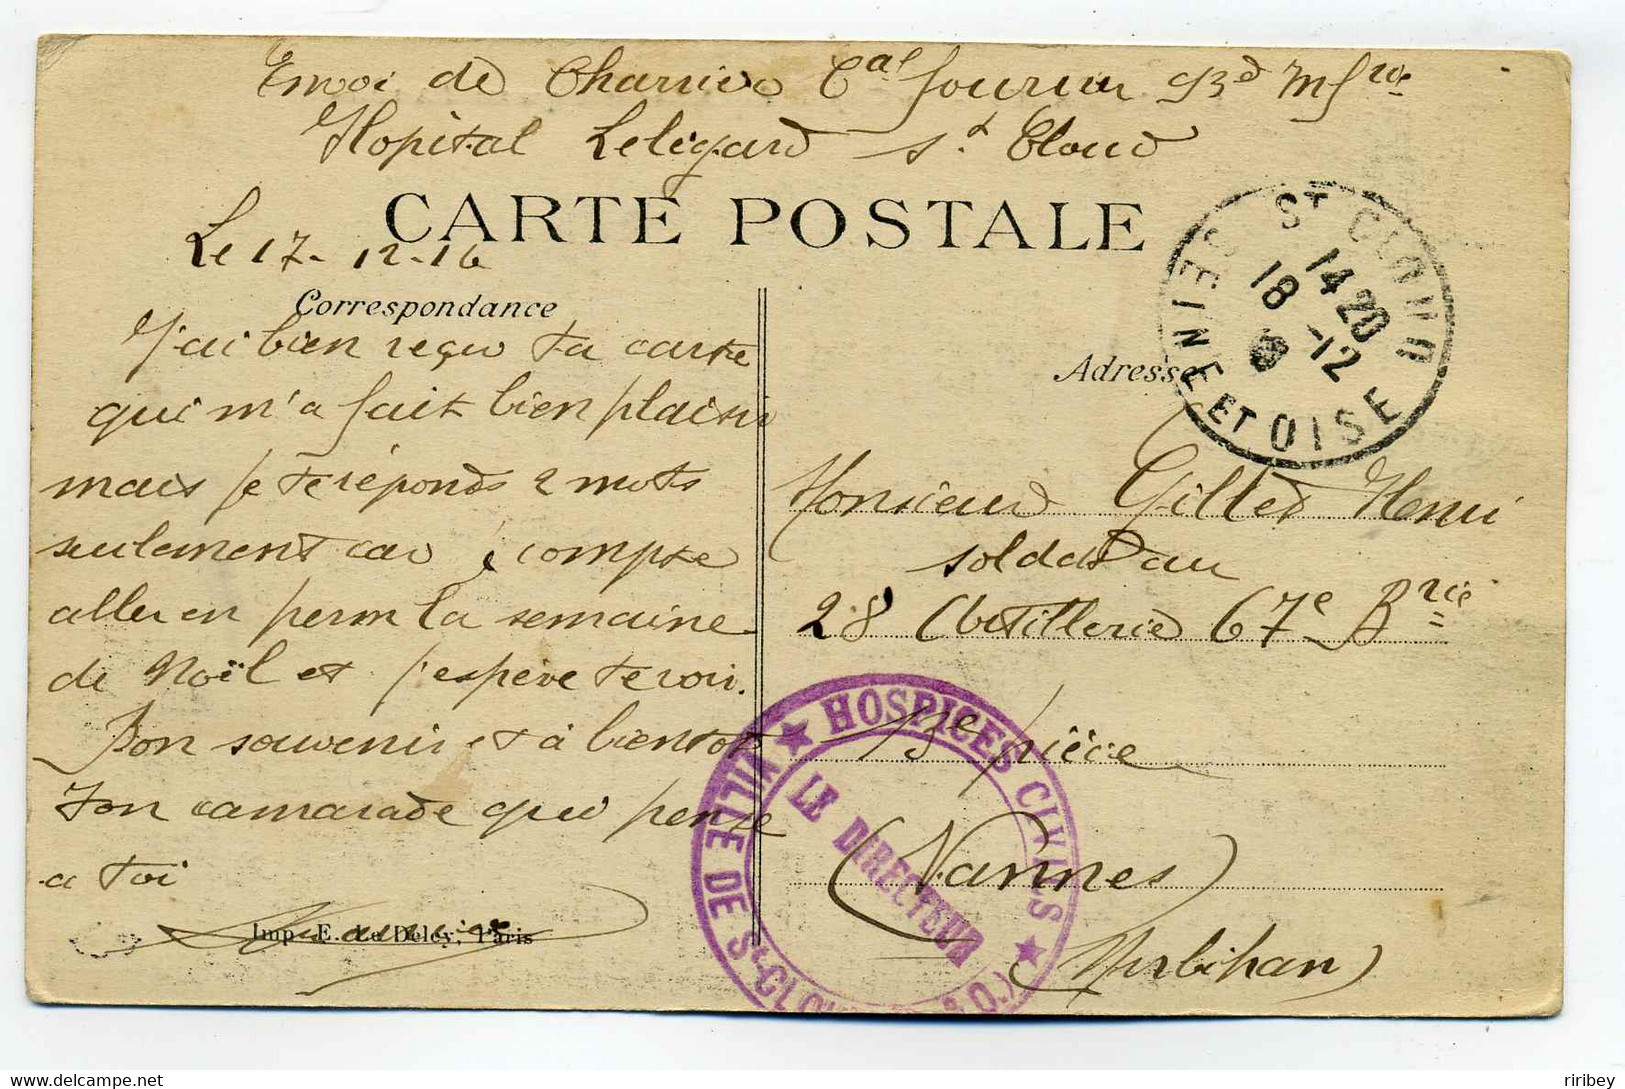 Envoi de Charrier Cal fourrier 93d Infrie
Hopital Leligard St Cloud
CARTE POSTALE
Le 17-12-16
Correspondance
J'ai bien reçu ta carte
qui m'a fait bien plaisir
mais je te réponds 2 mots
seulement car je compte
aller en perm la semaine
de Noël et j'espère te voir.
Bon souvenir et à bientot
Ton camarade qui pense
a toi
Imp. E. Le Deley, Paris
ST CLOUD
SEINE ET OISE
14 20
18 -12
Adresse
Monsieur Gillet Henri
soldat au
28 Artillerie 67e Brie
13e pièce
(Vannes)
(Morbihan)
VILLE DE St CLOUD (S & O)
HOSPICES CIVILS
LE DIRECTEUR
riribey